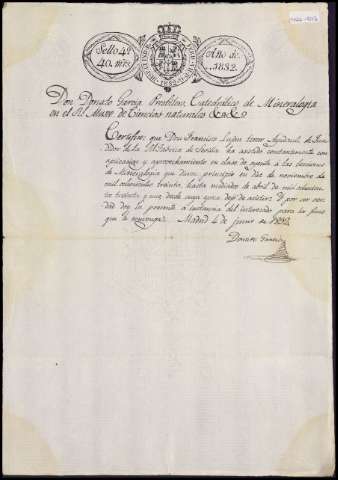 Sello 4º
40. mrs.
Año de
1832.
Don Donato Garcia Presbitero Catedratico de Mineralogia
en el Rl. Museo de Ciencias naturales &a. &a.
Certifico: que Don Francisco Luxan Ayudante de
de la Fabrica de Sevilla ha asistido constantemente con
aplicacion y aprovechamiento en clase de oyente a las lecciones
de Mineralogia que dieron principio en dia de noviembre de
mil ochocientos treinta, hasta mediados de abril de mil ochocientos
treinta y uno desde cuya epoca dejo de asistir. Y por ser verdad
doy la presente a instancia del interesado para los fines
que le convengan. Madrid 4 de junio de 1832.
Donato Garcia